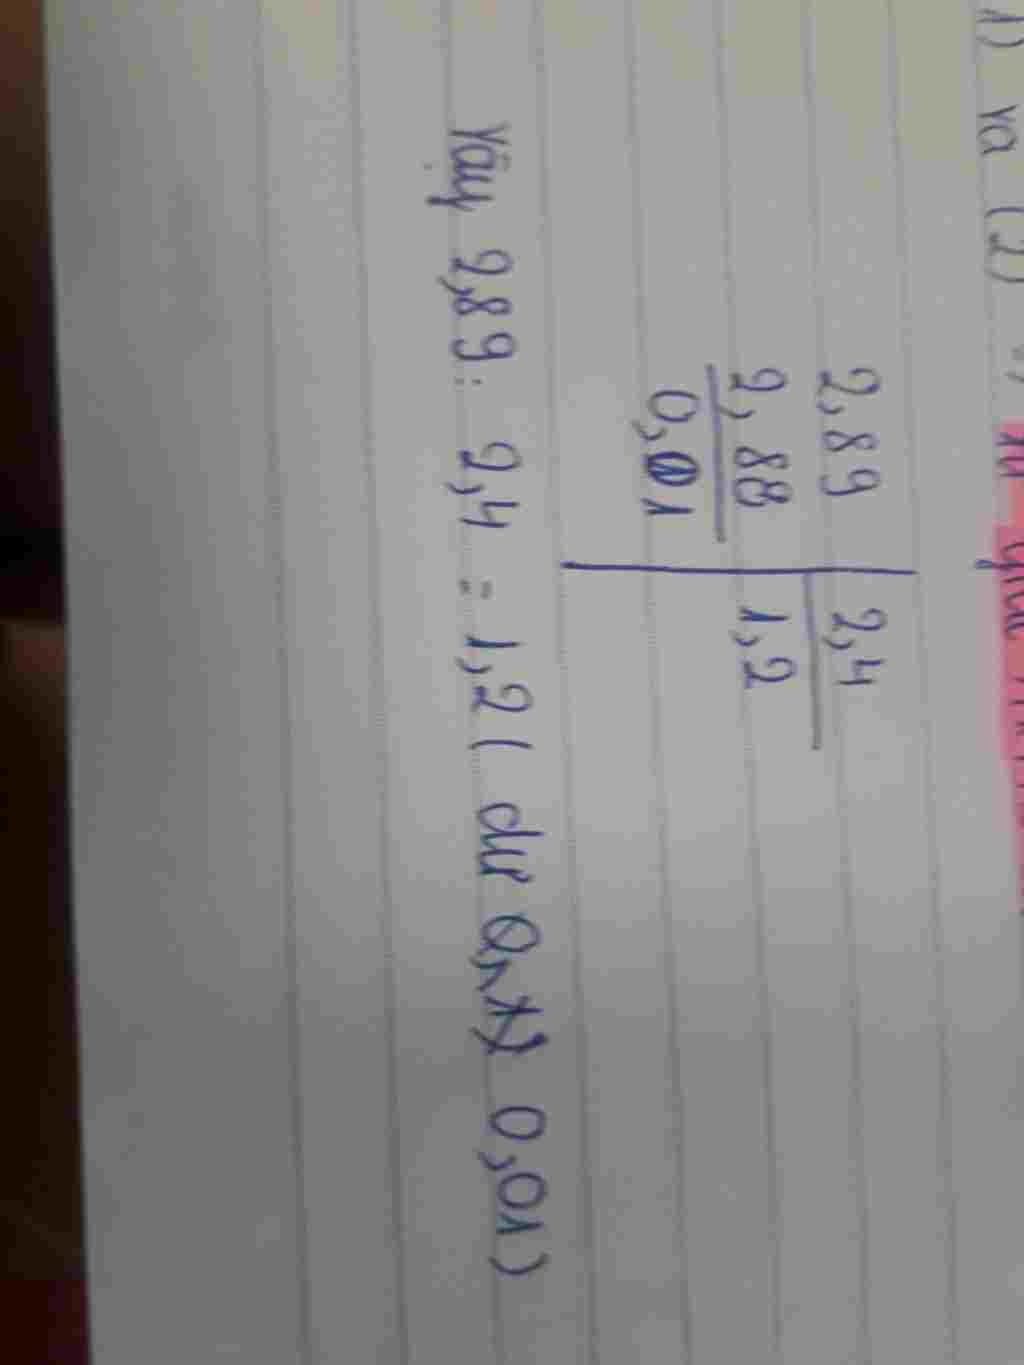 1) và (2)
2,89 | 2,4
2,88 | 1,2
0,01
Vậy 2,89 : 2,4 = 1,2 ( dư 0,01)